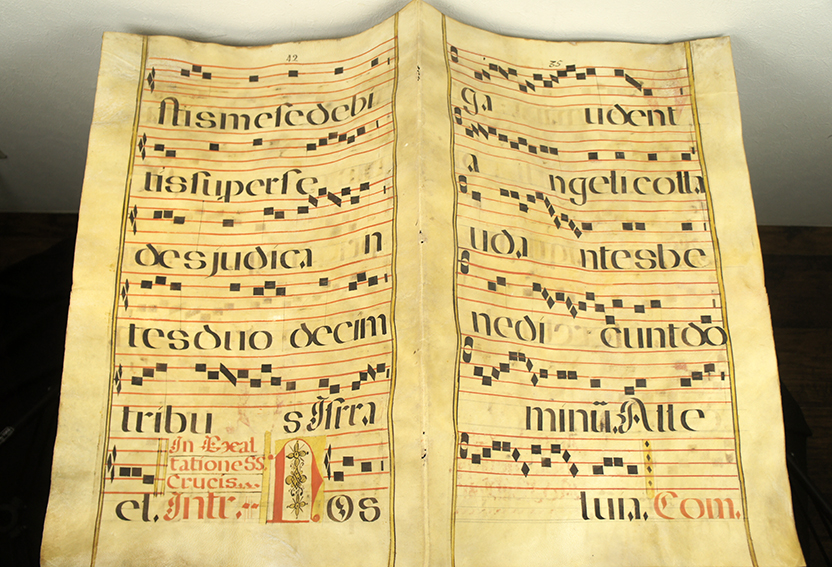 42
stismesedebi
tissuperse
desjudica n
tesduo decim
tribu s Isrra
In Exal
tatione SS.
Crucis...
el. Intr. N os
ga udent
a ngeli colla
uda ntesbe
nedi cuntdo
minũ. Alle
luia. Com.